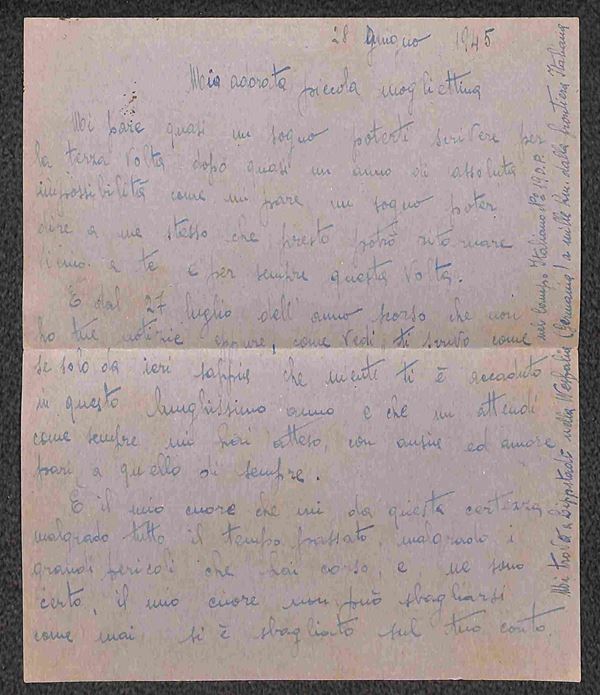 28 Giugno 1945
Mia adorata piccola mogliettina
Mi pare quasi un sogno poterti scrivere per
la terza volta dopo quasi un anno di assoluta
impossibilità come mi pare un sogno poter
dire a me stesso che presto potrò ritornare
vicino a te e per sempre questa volta.
È dal 27 luglio dell'anno scorso che non
ho tue notizie eppure, come vedi, ti scrivo come
se solo da ieri sappia che niente ti è accaduto
in questo lunghissimo anno e che mi attendi
come sempre mi hai atteso, con ansia ed amore
pari a quello di sempre.
È il mio cuore che mi da questa certezza
malgrado tutto il tempo passato, malgrado i
grandi pericoli che hai corso, e ne sono
certo, il mio cuore non può sbagliarsi
come mai si è sbagliato sul tuo conto.
Mi trovo a Lippstadt nella Westfalia (Germania) a mille km. dalla frontiera Italiana
nel campo Italiano N° 19 D.P.